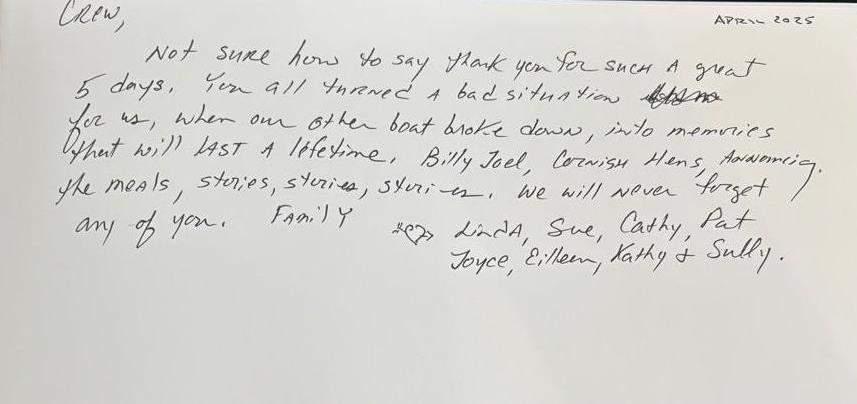 Crew,
APRIL 2025
Not sure how to say thank you for such A great
5 days. You all turned A bad situation
for us, when our other boat broke down, into memories
that will LAST A lifetime. Billy Joel, Cornish Hens, Announcing
the meals, stories, stories, stories. We will never forget
any of you. FAMILY
LindA, Sue, Cathy, Pat
Joyce, Eilleen, Kathy & Sully.